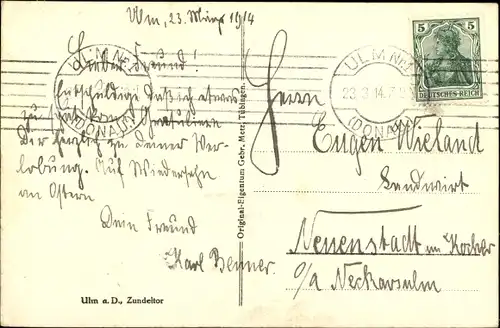 Ulm, 23. März 1914
Lieber Freund!
Entschuldige daß ich etwas
zu spät komm. Gratuliere
Dir herzlich zu Deiner Ver-
lobung. Auf Wiedersehn
an Ostern
Dein Freund
Karl Benner
Ulm a.D., Zundeltor
Original-Eigentum Gebr. Metz, Tübingen.
ULM
(DONAU)
ULM
23.3.14.7
(DONAU)
5 5
DEUTSCHES REICH
Herrn
Eugen Wieland
Landwirt
Neuenstadt am Kocher
O/A Neckarsulm